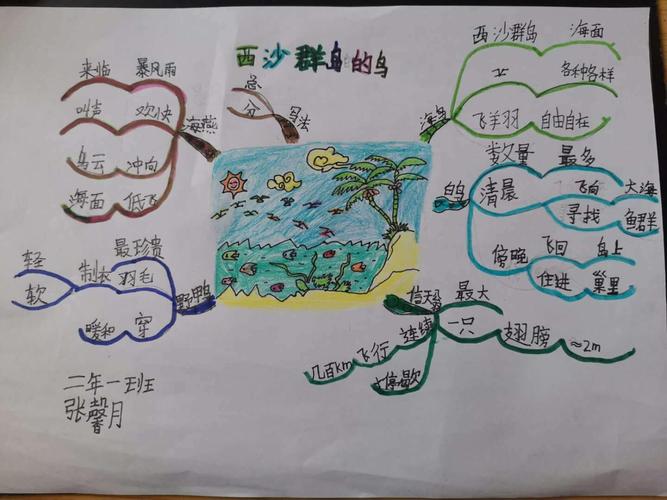 西沙群岛的鸟
总
分
写法
海鸟
西沙群岛
海面
各种各样
自由自在
数量
最多
清晨
飞向
大海
寻找
鱼群
傍晚
飞回
岛上
住进
巢里
信天翁
最大
一只
翅膀
≈2m
连续
飞行
几百km
不停歇
野鸭
最珍贵
羽毛
制衣
轻
软
穿
暖和
海燕
来临
暴风雨
叫声
欢快
乌云
冲向
海面
低飞
二年一班
张馨月